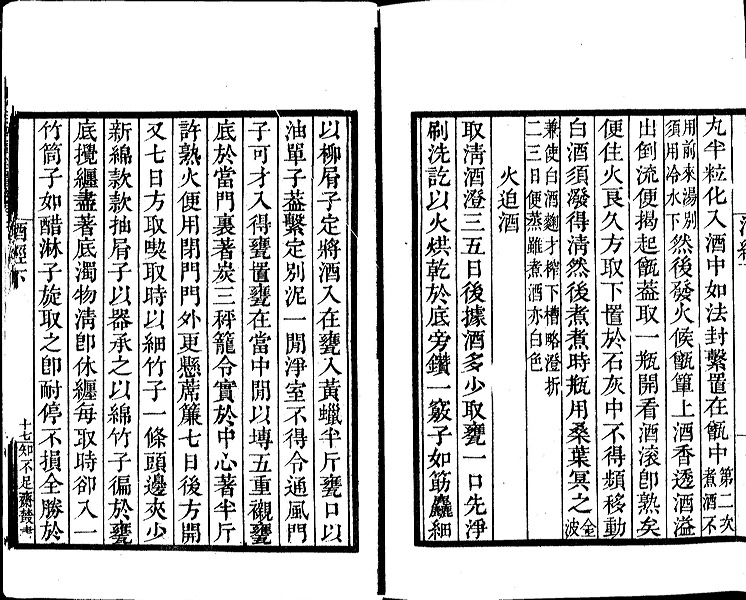 丸半粒化入酒中如法封繫置在甑中第二次煮酒不
用前來湯別須用冷水下然後發火候甑簞上酒香透酒溢
出倒流便揭起甑蓋取一瓶開看酒滚卽熟矣
便住火良久方取下置於石灰中不得頻移動
白酒須潑得清然後煮煮時瓶用桑葉冥之金波
兼使白酒麴才榨下槽略澄折二三日便蒸雖煮酒亦白色
火迫酒
取清酒澄三五日後據酒多少取甕一口先淨
刷洗訖以火烘乾於底旁鑽一竅子如筋麤細
以柳屑子定將酒入在甕入黃蠟半斤甕口以
油單子蓋繫定別泥一閒淨室不得令通風門
子可才入得甕置甕在當中閒以塼五重襯甕
底於當門裏著炭三秤籠令實於中心著半斤
許熟火便用閉門門外更懸蓆簾七日後方開
又七日方取喫取時以細竹子一條頭邊夾少
新綿款款抽屑子以器承之以綿竹子徧於甕
底攪纏盡著底濁物清卽休纏每取時卻入一
竹筒子如醋淋子旋取之卽耐停不損全勝於
酒經下
十七知不足齋叢書